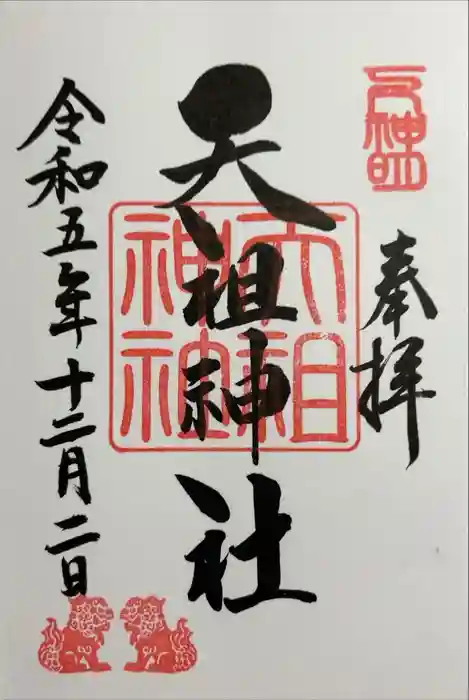 奉拝
天祖神社
天祖
神社
令和五年十二月二日